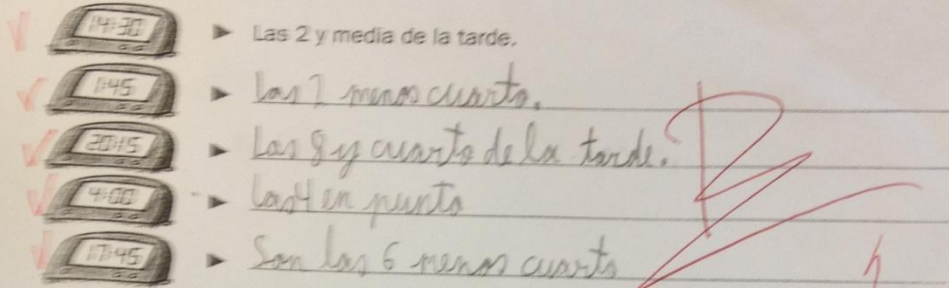 14:30 Las 2 y media de la tarde.
1:45 Las 2 menos cuarto.
20:15 Las 8 y cuarto de la tarde.
4:00 las 4 en punto
17:45 Son las 6 menos cuarto